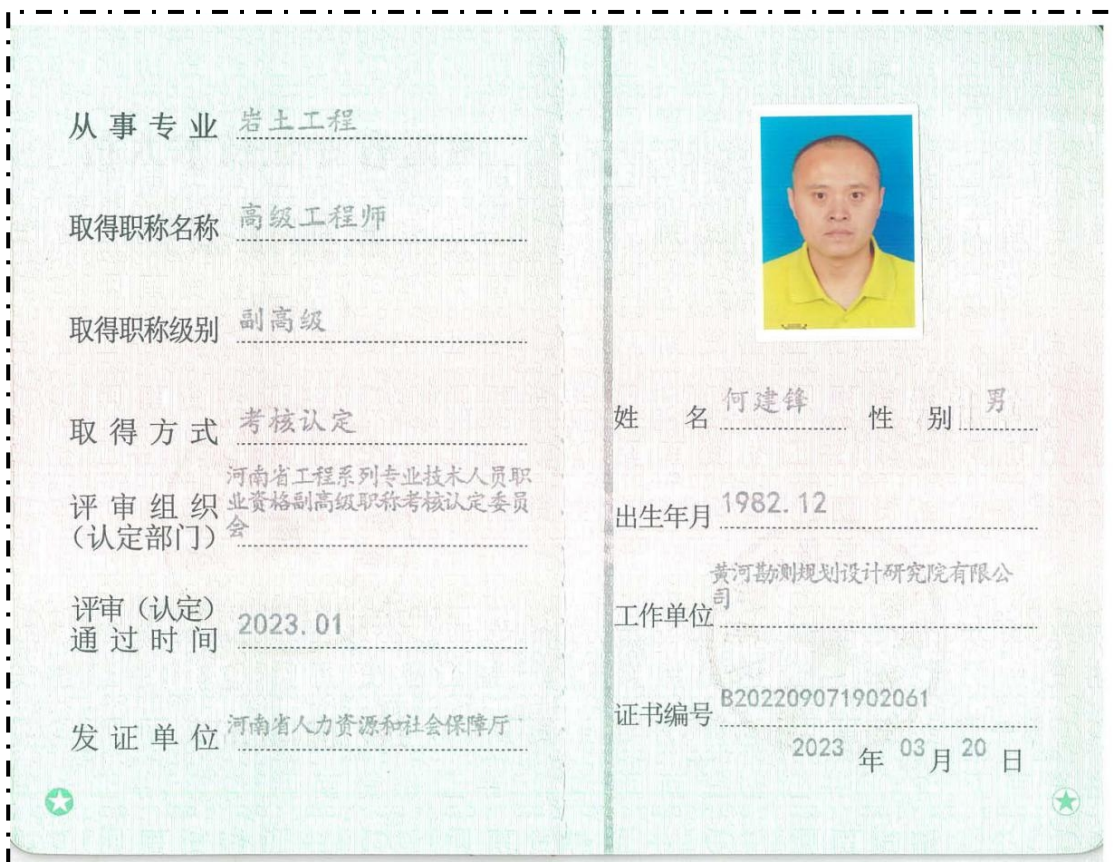 从事专业 岩土工程
取得职称名称 高级工程师
取得职称级别 副高级
取得方式 考核认定
评审组织
（认定部门）
河南省工程系列专业技术人员职
业资格副高级职称考核认定委员
会
评审（认定）
通过时间 2023.01
发证单位 河南省人力资源和社会保障厅
姓名 何建锋 性别 男
出生年月 1982.12
工作单位 黄河勘测规划设计研究院有限公
司
证书编号 B202209071902061
2023 年 03 月 20 日